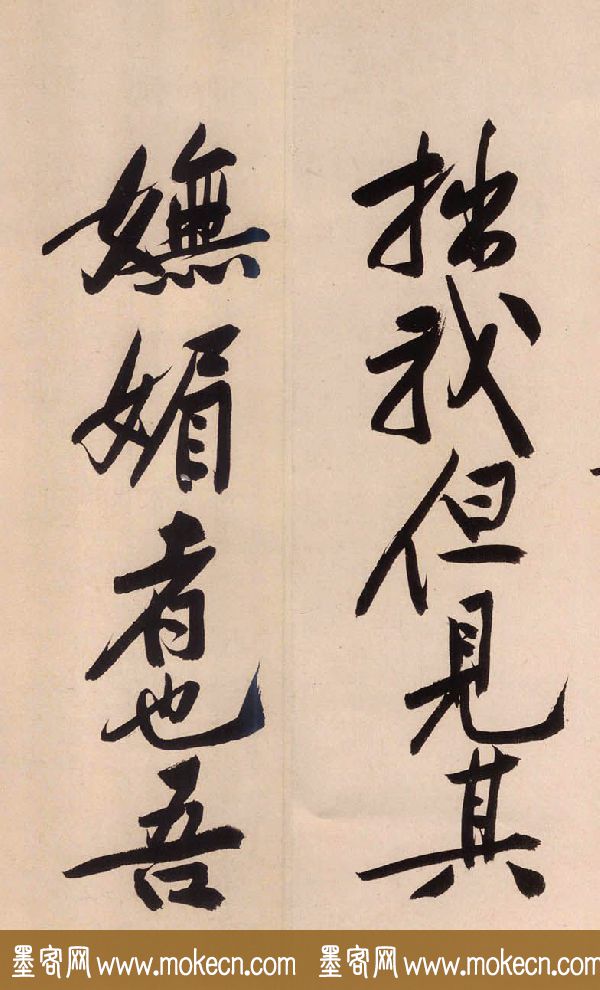 拙我但见其
嫵媚者也吾
墨客网 www.mokecn.com 墨客网 www.mokecn.com